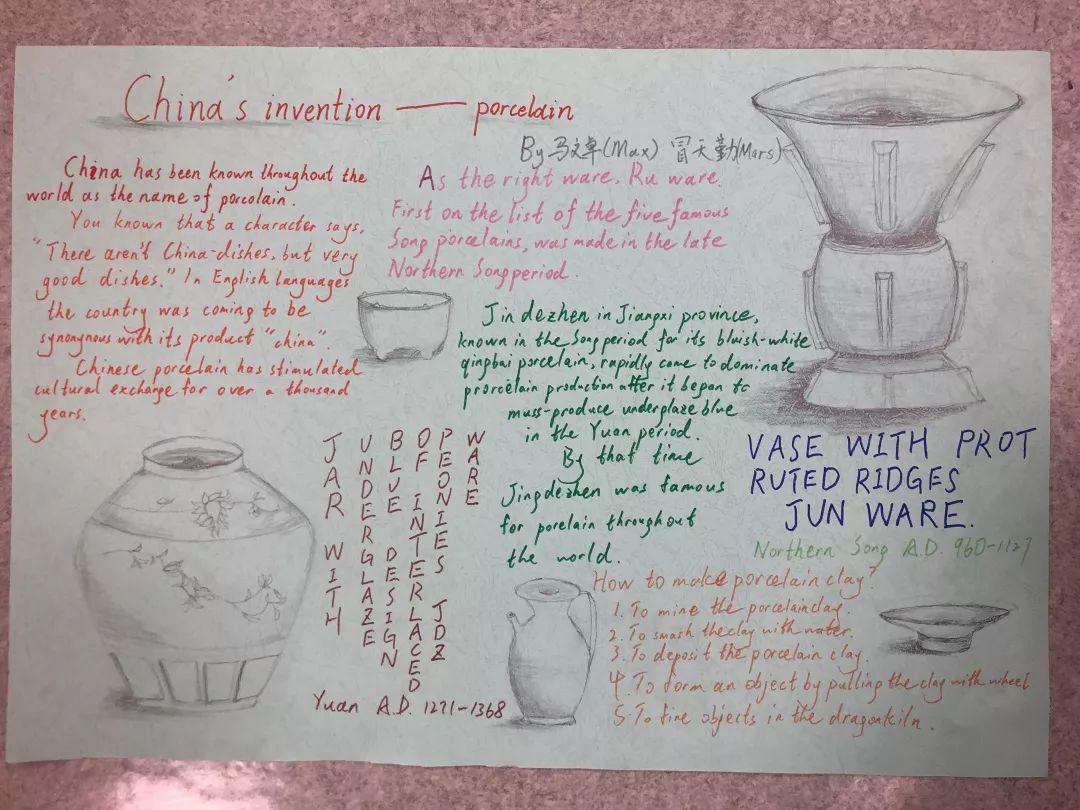 China's invention —— porcelain
By 马文卓(Max) 冒天勤(Mars)
China has been known throughout the
world as the name of porcolain.
You known that a character says,
"There aren't China-dishes, but very
good dishes." In English languages
the country was coming to be
synonynous with its product "china".
Chinese porcelain has stimulated
cultural exchange for over a thousand
years.
As the right ware, Ru ware.
First on the list of the five famous
Song porcelains, was made in the late
Northern Song period.
Jin dezhen in Jiangxi province,
known in the Song period for its bluish-white
qingbai porcelain, rapidly came to dominate
prorcelain production after it began to
muss-produce underglaze blue
in the Yuan period.
By that time
Jingdezhen was famous
for porelain throughout
the world.
VASE WITH PROT
RUTED RIDGES
JUN WARE.
Northern Song A.D. 960-1127
JAR WITH
UNDERGLAZE
BLUE DESIGN
OF INTERLACED
PEONIES JDZ
WARE
Yuan A.D. 1271-1368
How to make porcelain clay?
1. To mine the porcelain clay.
2. To smash the clay with water.
3. To deposit the porcelain clay.
4. To form an object by pulling the clay with wheel
5. To fire objects in the dragonkiln.